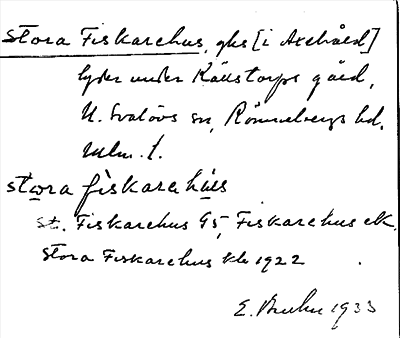 Stora Fiskarehus, ghs [i Axelvåld]
lyder under Källstorps gård,
N. Svalövs sn, Rönnebergs hd.
Mlm. l.
stora fiskarehus
St. Fiskarehus G5, Fiskarehus ek.
Stora Fiskarehus kb 1922
E. Bruhn 1933